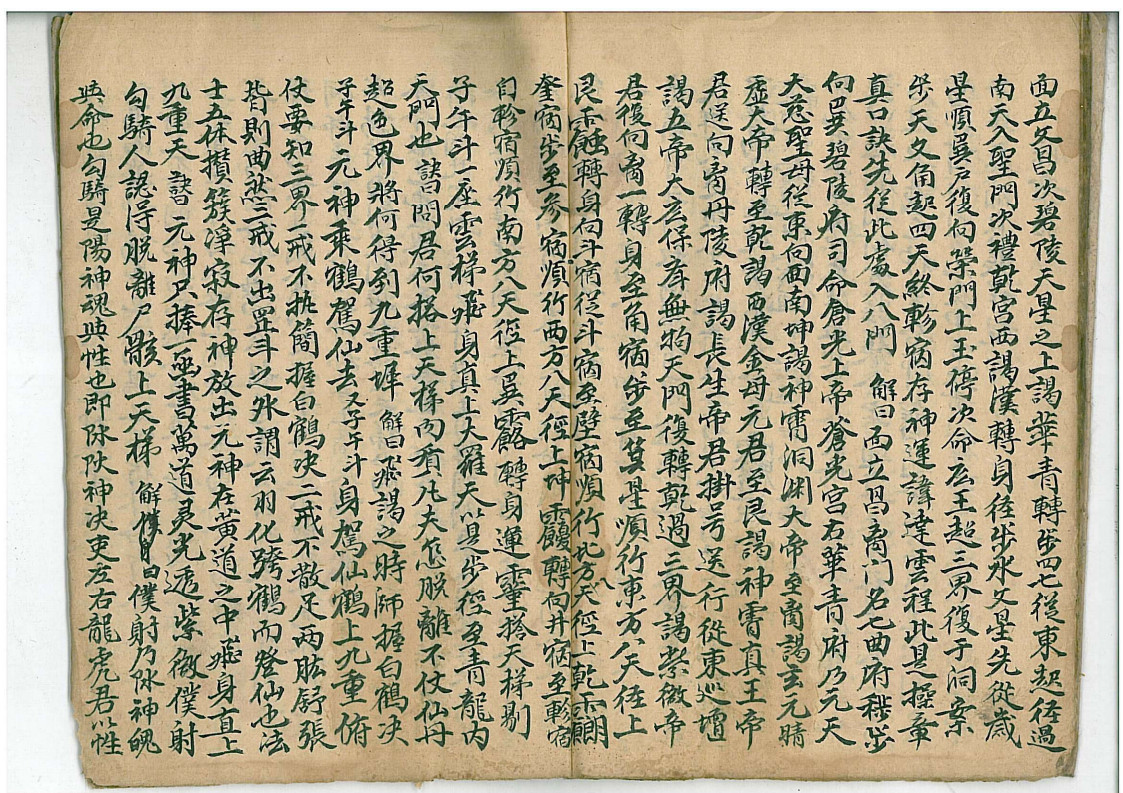 面五文昌次碧陵天星之上謁華青轉步四七從東起径過
南天入聖門次禮乾宮西謁漢轉身径步水文星先從歲
星順巽戶復向桀門上玉傍次命広王超三界復于洞案
步天文角起四天終軫宿存神運諱達雲程此是擅章
真口訣先從此處入八門　解曰面立昌离門名七曲府
向巽碧陵府司命倉光上帝蒼光宮右華青府乃元天
大慈聖母從東向西南坤謁神霄洞渊大帝至离謁玄元晴
虛大帝轉至乾謁西漢金母元君至艮謁神霄真王帝
君送向离丹陵府謁長生帝君掛号送行從東巡壇
謁五帝大玄保庥無拘天門復轉乾過三界謁紫微帝
君復向离一轉身至角宿步至箕星順行東方八天径上
艮轉身向斗宿從斗宿至壁宿順行北方八天徑上乾
奎宿步至参宿順行西方八天徑上坤轉向井宿至軫宿
自軫宿順行南方八天徑上巽轉身運靈捨天梯剔
子午斗一座雲梯飛身真上大羅天以是步徑至青龍内
天門也　訣曰問君何搭上天梯肉質凢夫怎脱離不仗仙丹
超色界將何得到九重墀　解曰飛謁之時師握白鶴决
子午斗元神乘鶴駕仙去又子午斗身駕仙鶴上九重俯
仗要知三界一戒不抛簡握白鶴决二戒不散足兩肱舒張
指則曲然三戒不出罡斗之外謂云羽化跨鶴而登仙也法
士五体攅簇淳寂存神放出元神在黄道之中飛身直上
九重天　訣曰元神只捧一凾書萬道灵光透紫微僕射
勾騎人認得脱離尸骸上天梯　解曰僕射乃陰神魄
與命也勾騎是陽神魂與性也即陰陽神决吏左右龍虎君以性